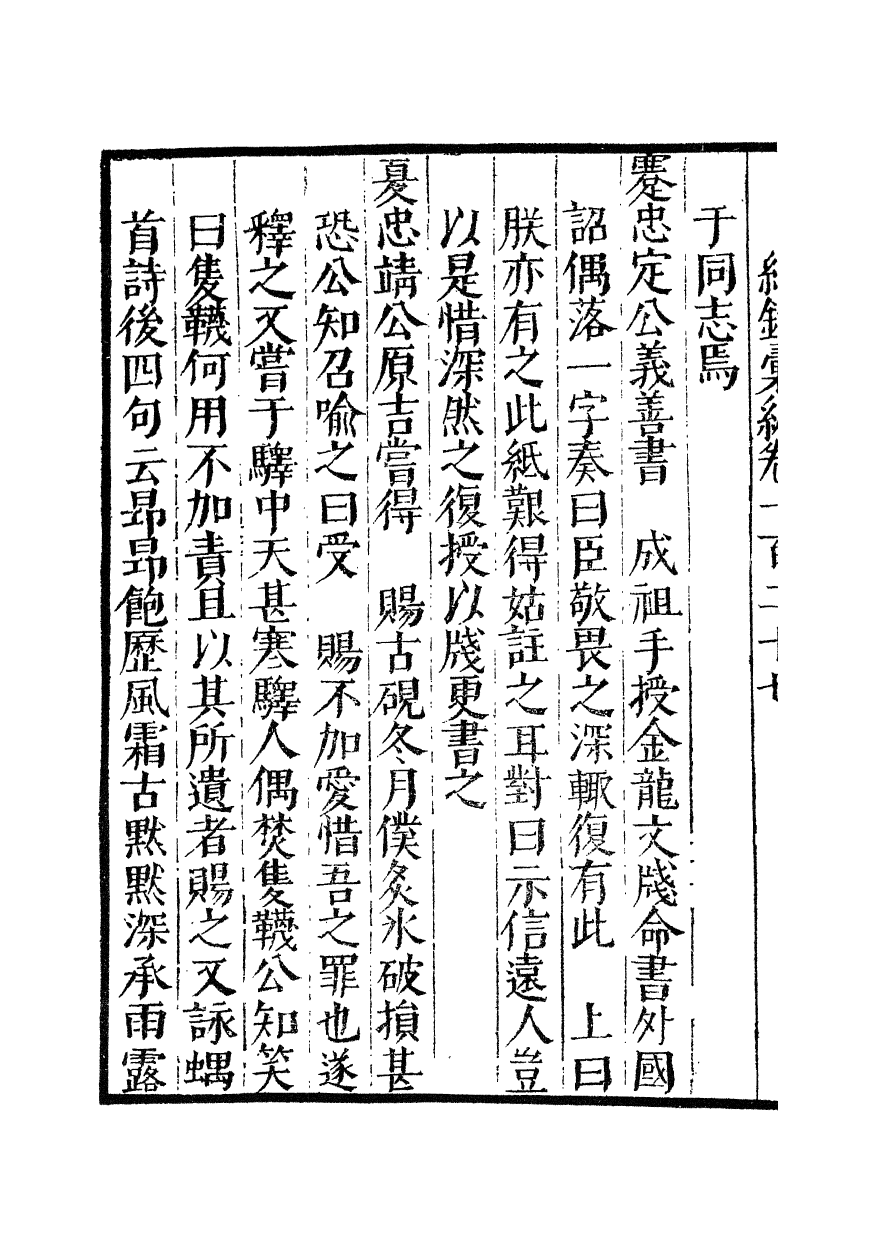 紀錄彙編卷一百二十七
于同志焉
蹇忠定公義善書　成祖手授金龍文牋命書外國
詔偶落一字奏曰臣敬畏之深輙復有此　上曰
朕亦有之此紙艱得姑註之耳對曰示信遠人豈
以是惜深然之復授以牋更書之
夏忠靖公原吉嘗得　賜古硯冬月僕炙氷破損甚
恐公知召喻之曰受　賜不加愛惜吾之罪也遂
釋之又嘗于驛中天甚寒驛人偶焚隻韈公知笑
曰隻韈何用不加責且以其所遺者賜之又詠螭
首詩後四句云昻昻飽歷風霜古默默深承雨露